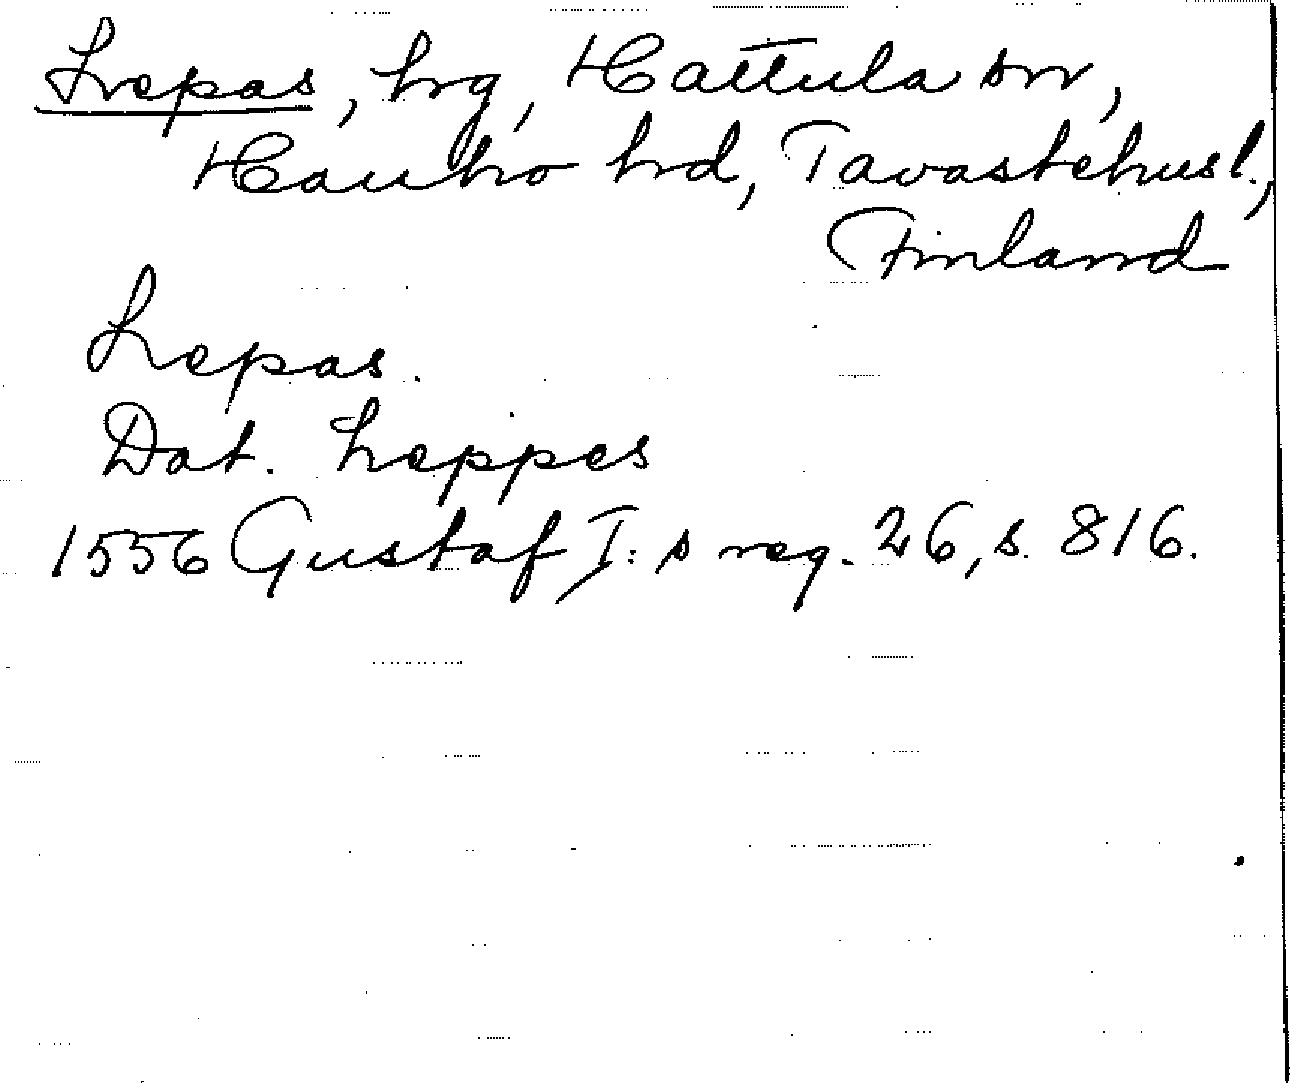 Lepas, hrg, Hattula sn,
Hauho hd, Tavastehus l.,
Finland
Lepas.
Dat. Leppes
1556 Gustaf I:s reg. 26, s. 816.